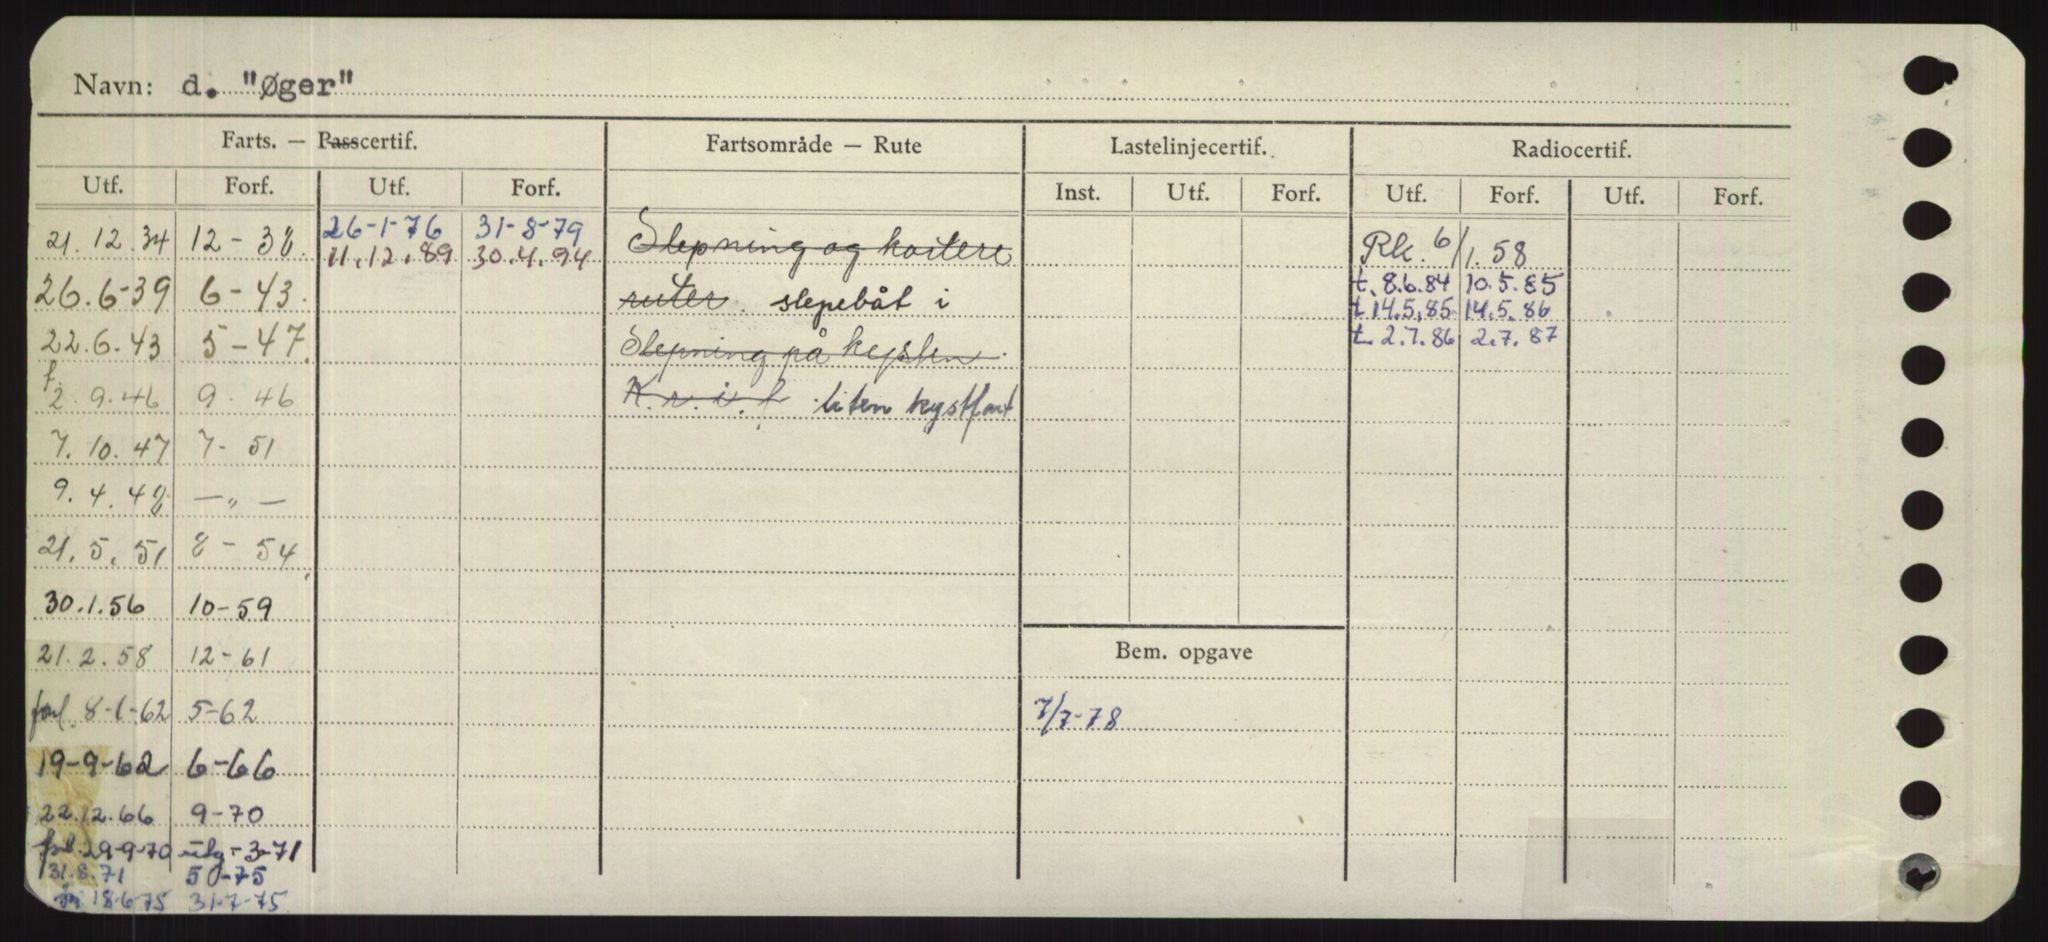 Navn: d. "Øger"
Farts. — Passcertif. Fartsområde — Rute Lastelinjecertif. Radiocertif.
Utf. Forf. Utf. Forf. Inst. Utf. Forf. Utf. Forf. Utf. Forf.
21.12.34 12-38. 26-1-76 31-8-79 Slepning og kortere Rk. 6/1.58
11.12.89 30.4.94
26.6-39 6-43. ruter. slepebåt i t. 8.6.84 10.5.85
t 14.5.85 14.5.86
22.6.43 5-47. Slepning på kysten. t. 2.7.86 2.7.87
f.
2.9.46 9.46 K.r.i.f liten kystfart
7.10.47 7-51
9.4.48 —„—
21.5.51 8-54
30.1.56 10-59
21.2.58 12-61 Bem. opgave
forl. 8-1-62 5-62 7/7-78
19-9-62 6-66
22.12.66 9-70
29-9-70 -3-71
31.8.71 5-75
18-6-75 31-7-75